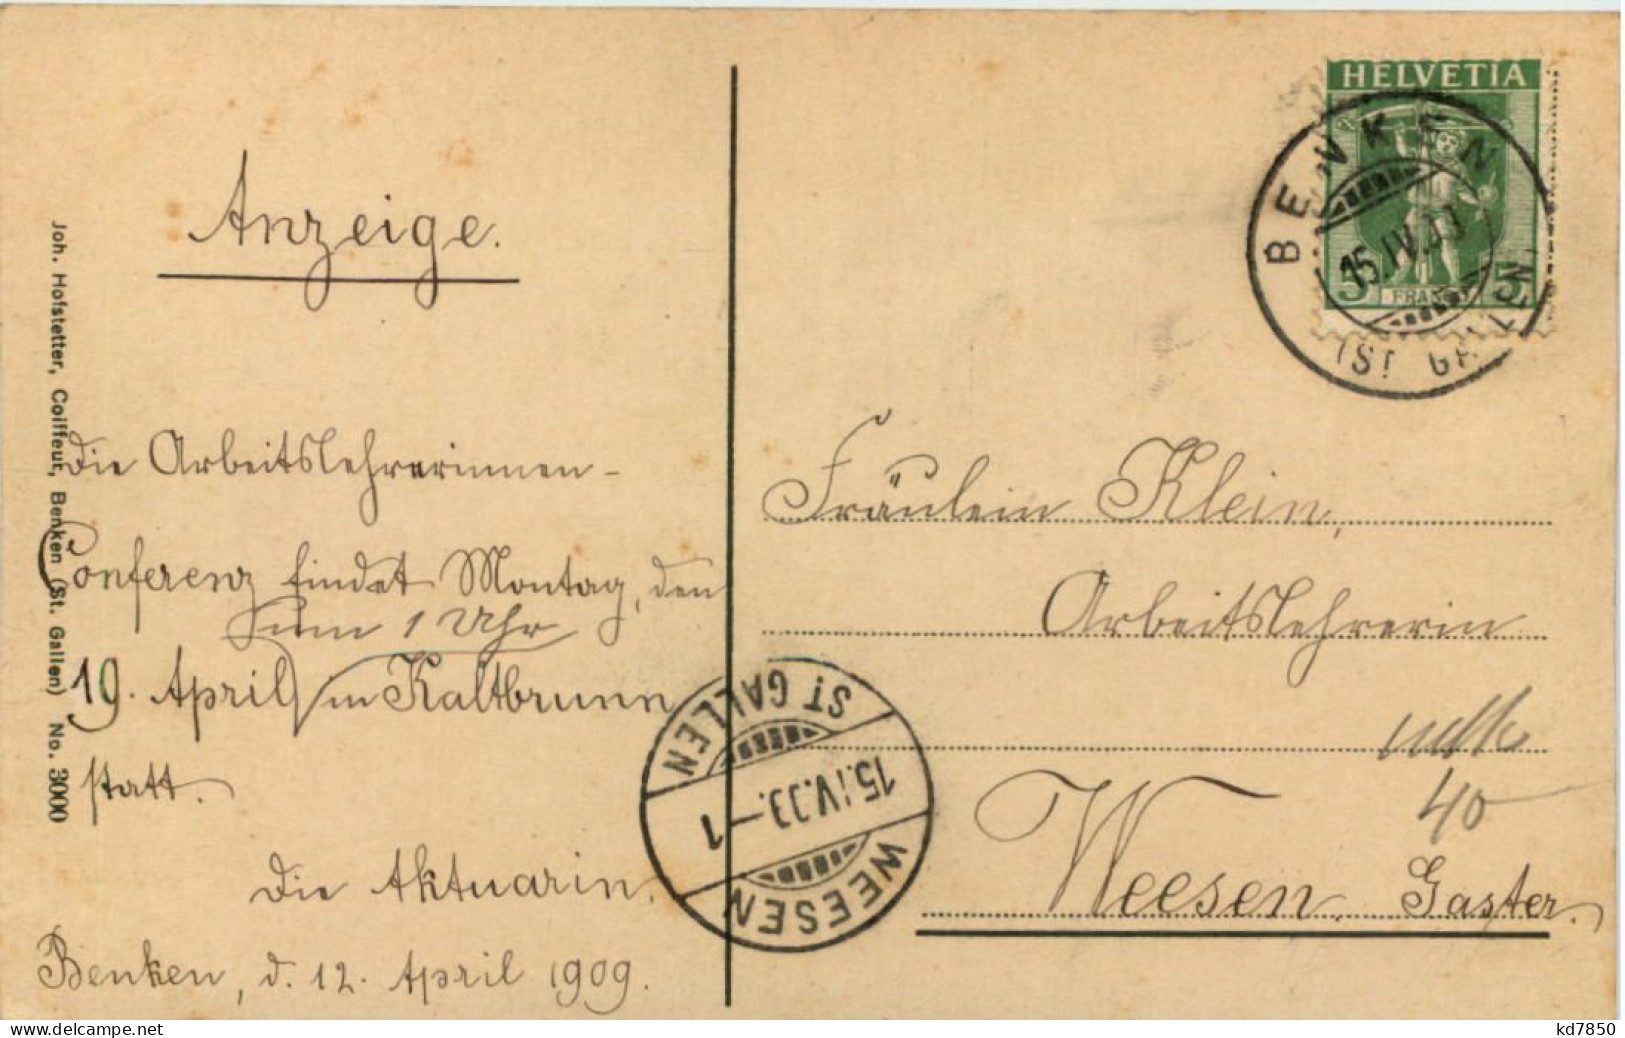 Anzeige.
Die Arbeitslehrerinnen-
Conferenz findet Montag, den
um 1 Uhr
19. April in Kaltbrunn
statt.
Die Aktuarin.
Benken, d. 12. April 1909.
Joh. Hofstetter, Coiffeur, Benken (St. Gallen) No. 3000
HELVETIA
5 FRANCO 5
BENKEN
15.IV.09
(ST GALLEN)
Fräulein Klein,
Arbeitslehrerin
40
Weesen. Gaster.
ST GALLEN
15.IV.09.-1
WEESEN
www.delcampe.net
kd7850